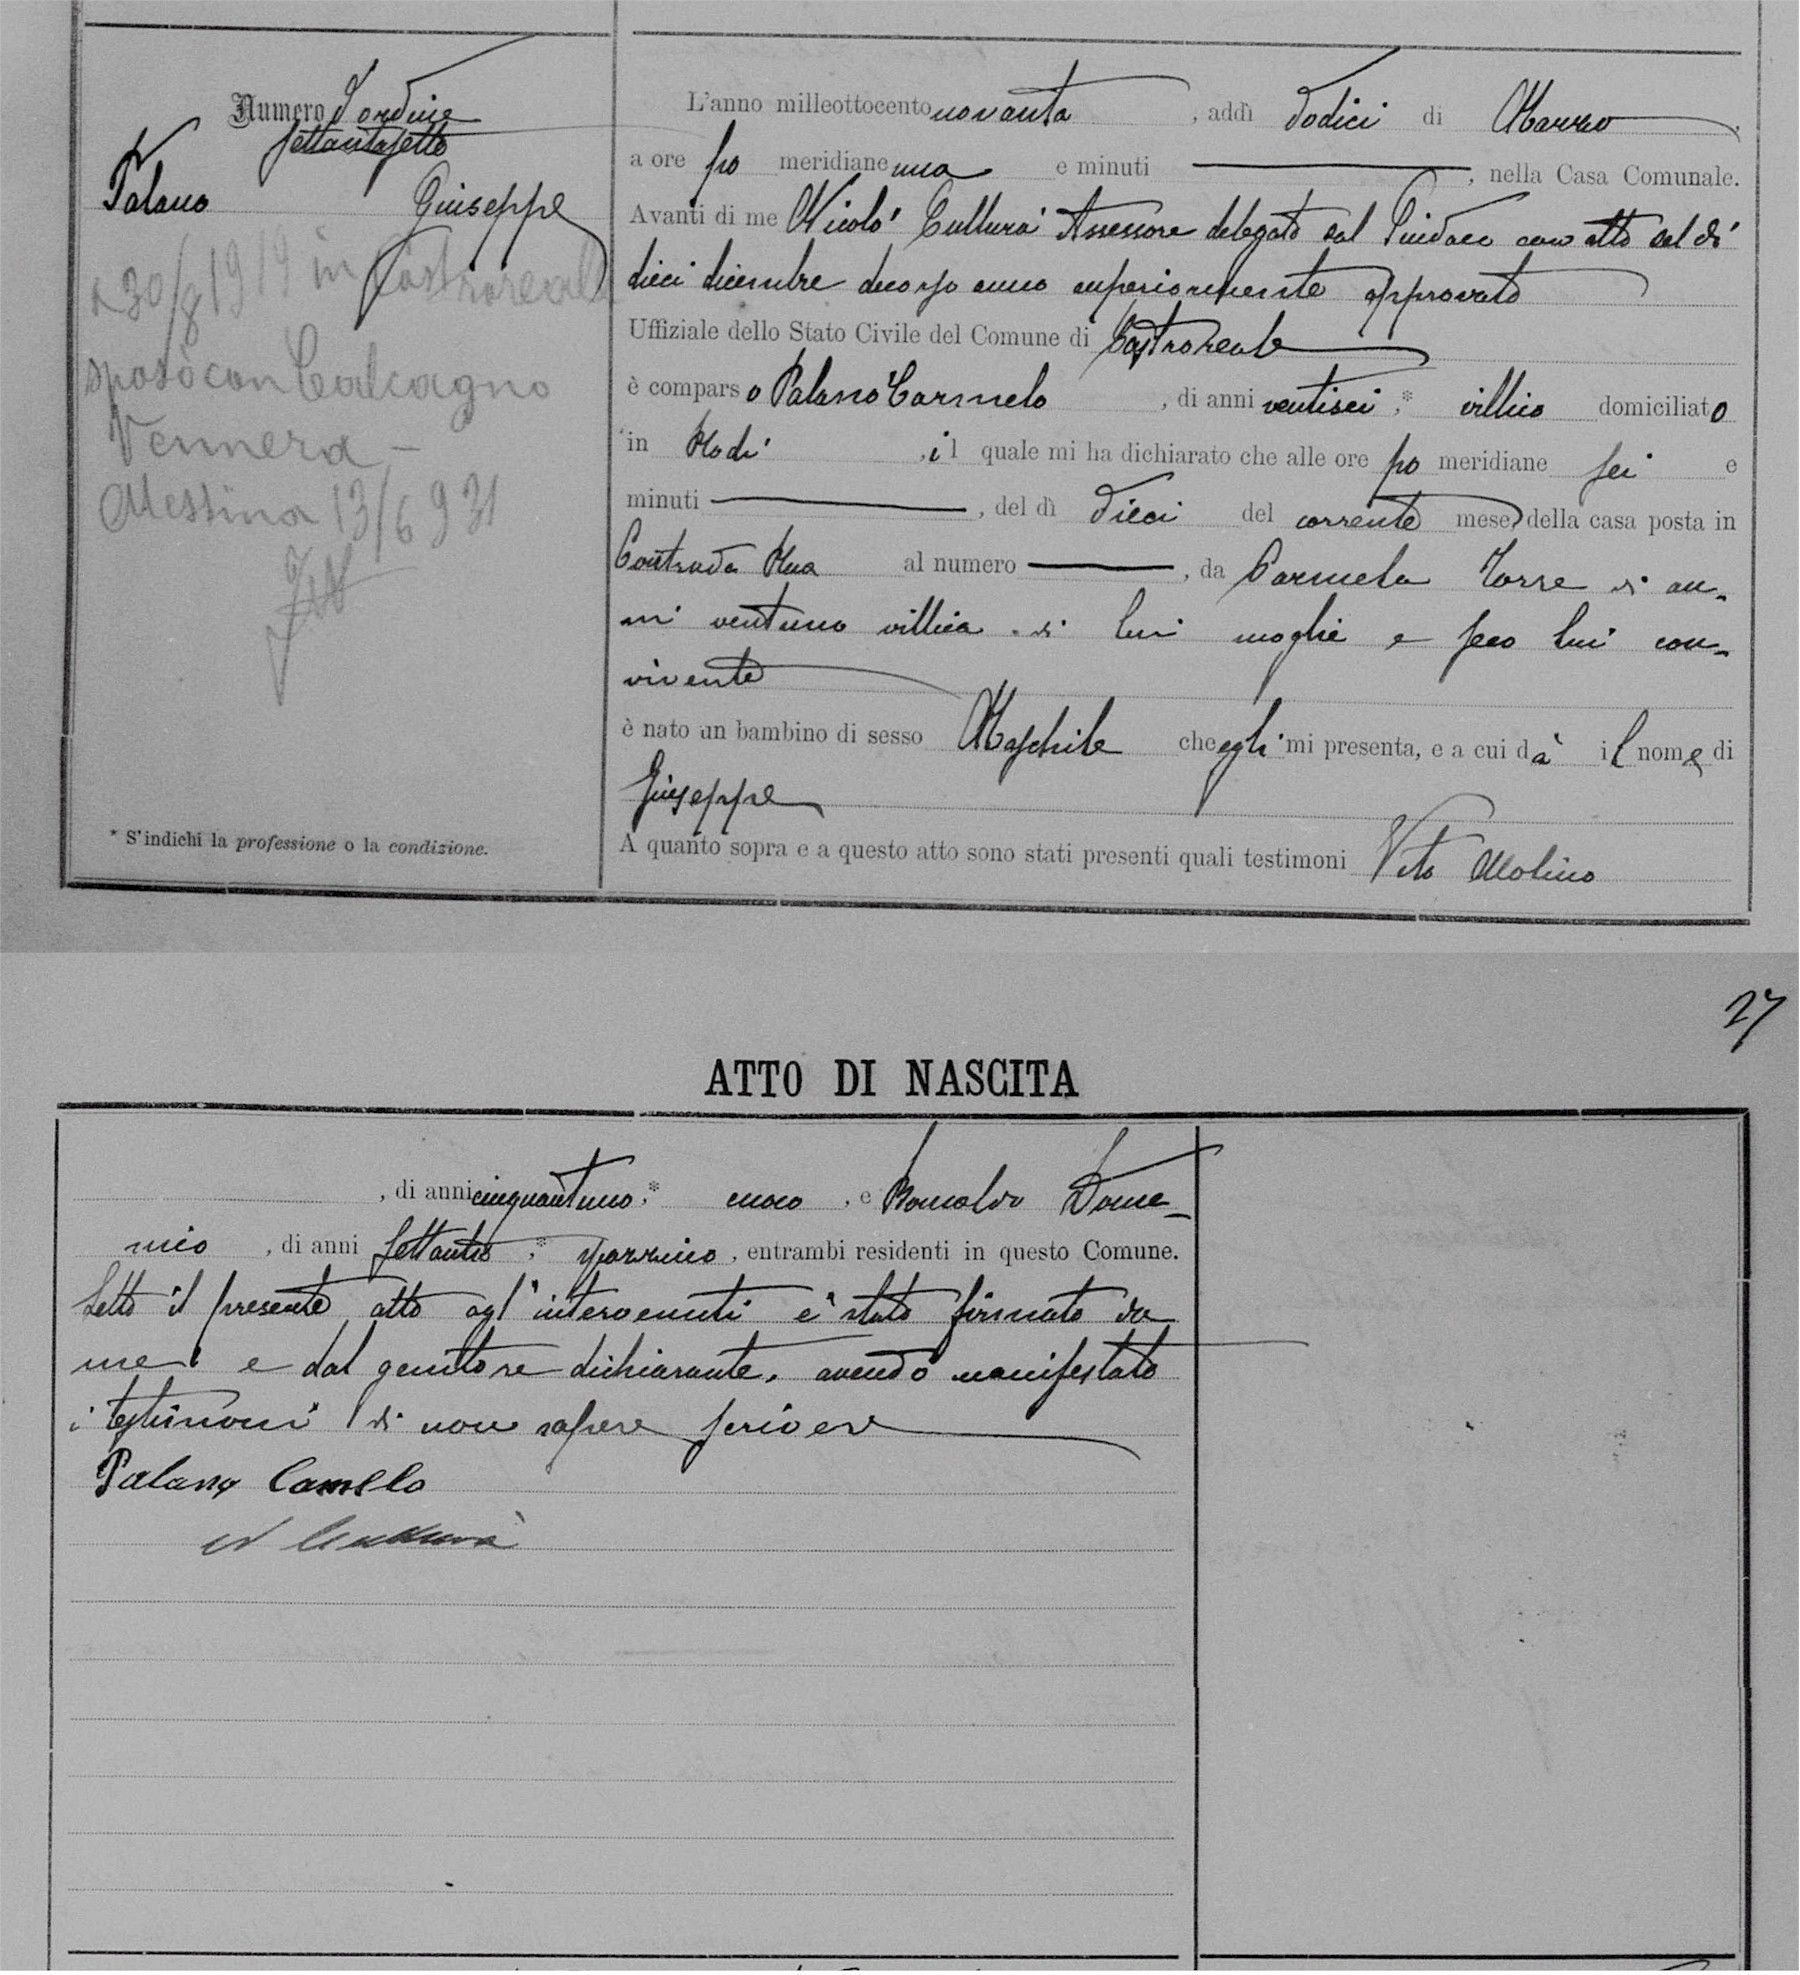 Numero d'ordine
settantasette
Palano Giuseppe
30/8 1919 in Castroreale
sposò con Calcagno
Vennera -
Messina 13/6 931
* S'indichi la professione o la condizione.
L'anno milleottocento novanta, addì dodici di Marzo,
a ore po meridiane una e minuti —, nella Casa Comunale.
Avanti di me Nicolò Cutturà Assessore delegato dal Sindaco con atto del dì
dieci dicembre decorso anno superiormente approvato
Uffiziale dello Stato Civile del Comune di Castroreale
è comparso Palano Carmelo, di anni ventisei,* villico domiciliato
in Rodì, il quale mi ha dichiarato che alle ore po meridiane sei e
minuti —, del dì dieci del corrente mese, della casa posta in
Contrada al numero —, da Carmela Torre di an-
ni ventuno villica di lui moglie e seco lui con-
vivente
è nato un bambino di sesso Maschile che egli mi presenta, e a cui dà il nome di
Giuseppe
A quanto sopra e a questo atto sono stati presenti quali testimoni Vito Molino
27
ATTO DI NASCITA
, di anni cinquantuno,* cuoco, e Romaldo Dome-
nico, di anni,* entrambi residenti in questo Comune.
Letto il presente atto agl'intervenuti è stato firmato da
me e dal genitore dichiarante, avendo manifestato
i testimoni di non sapere scrivere
Palano Camelo
N Cutturà